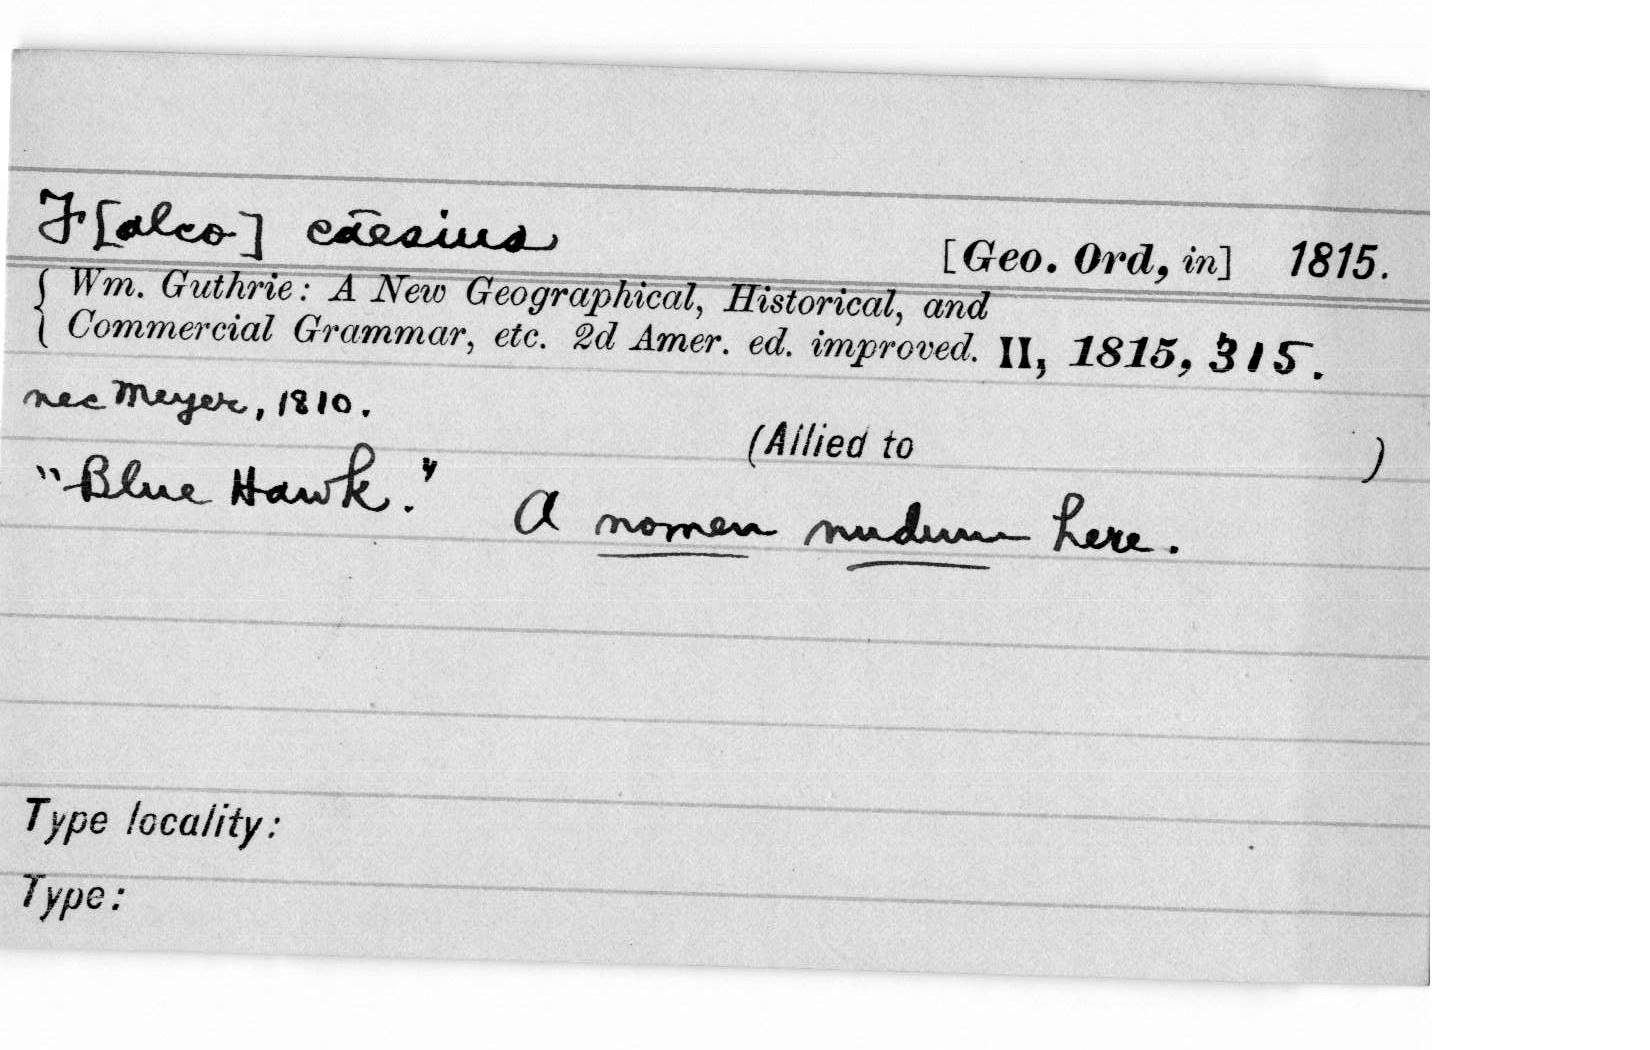 F[alco] cāesius [Geo. Ord, in] 1815.
Wm. Guthrie: A New Geographical, Historical, and
Commercial Grammar, etc. 2d Amer. ed. improved. II, 1815, 315.
nec Meyer, 1810.
(Allied to )
"Blue Hawk." A nomen nudum here.
Type locality:
Type: